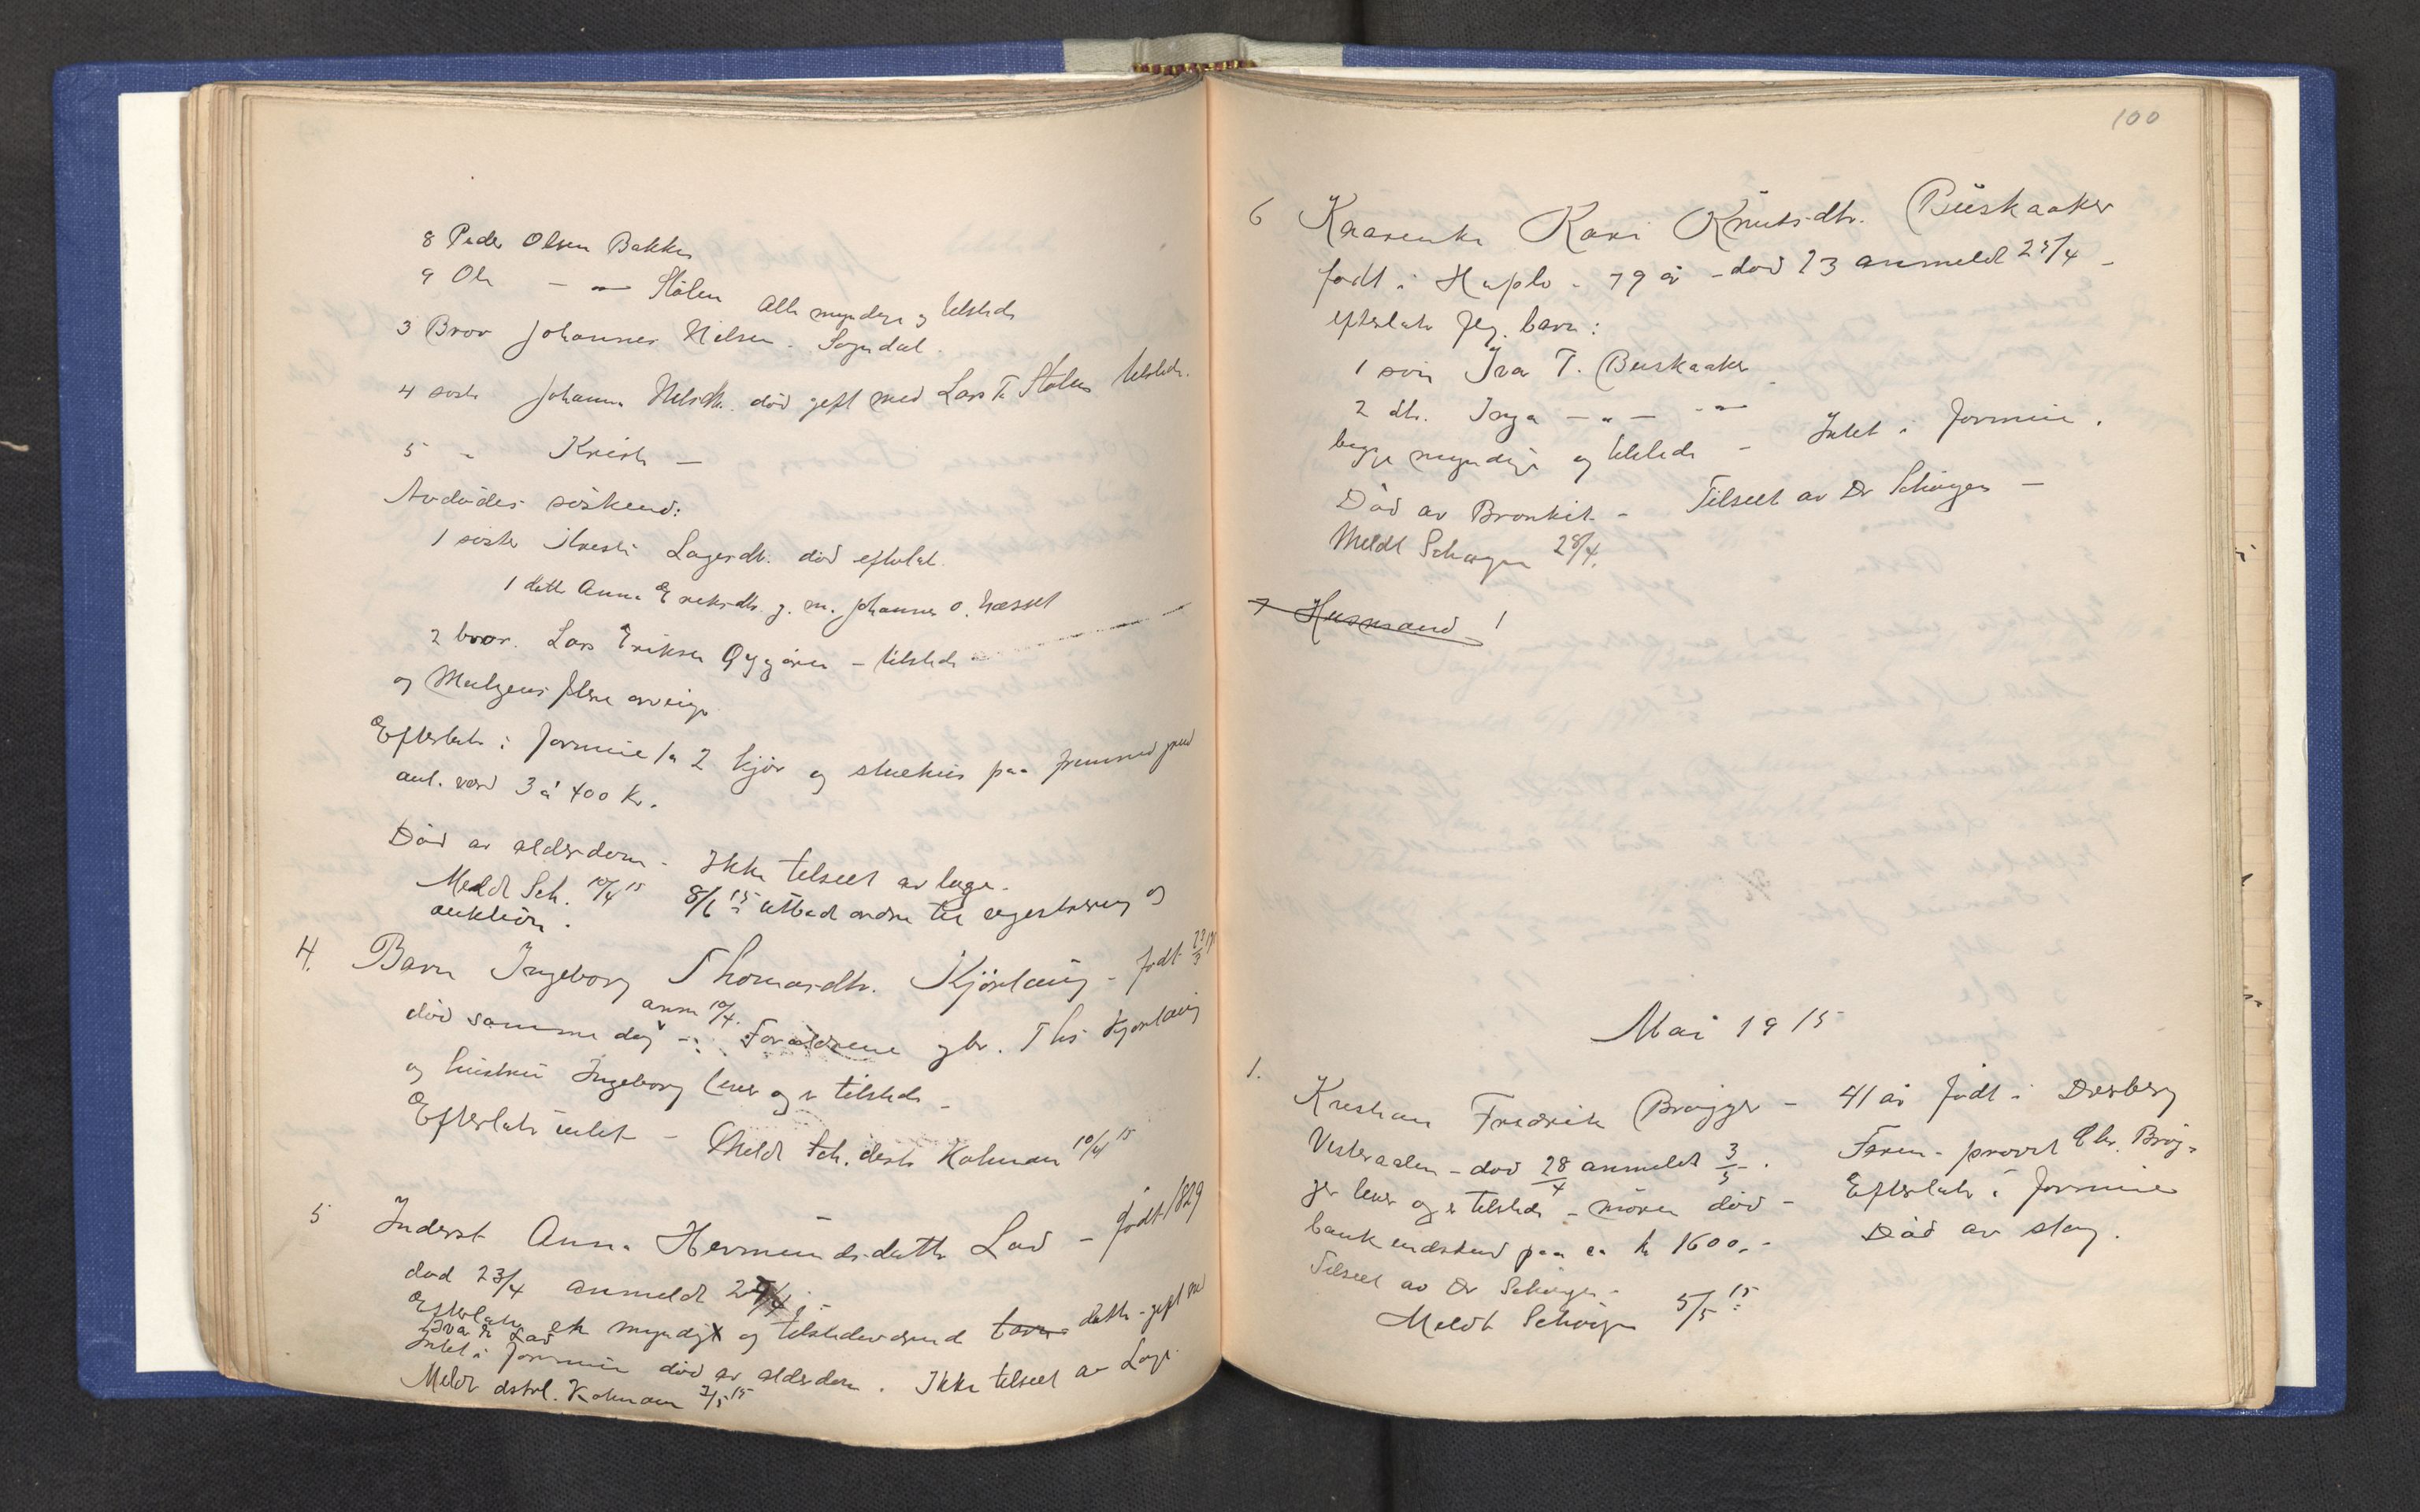 8 Peder Olsen Bakken
9 Ole — " — Stölen
Alle myndige og tilstede
3 Bror Johannes Nilsen. Sogndal.
4 søster Johanna Nilsdtr. död gift med Lars T. Stölen tilstede.
5 " Kristi —
Avdødes søskend:
1 søster Kristi Lasesdtr. död efterlat.
1 datter Anna Eriksdtr. g. m. Johannes O.
2 bror. Lars Eriksen Gygören - tilstede
og Muligens flere arvinger
Efterlate i formue ca 2 kjör og stuehus paa fremmed grund
anl. værd 3 à 400 Kr.
Död av alderdom - Ikke tilseet av læge.
Meldt Sch. 10/4 15 8/6 15 utbad ordre til registrering og
auktion.
4. Barn Ingeborg Thomasdtr. Kjörlaug - født 22/3
død samme dag anm 10/4. - Forældrene gbr. Ths Kjörlaug
og hustru Ingeborg lever og er tilstede -
Efterlate intet - Meldt Sch. distr Hohman 10/4 15
5 Inderst Anna Hermundsdatter Lad - født 1829
død 23/4 anmeldt
Efterlate ek myndig og tilstedeværend barn datter - gift m
Iva Lad
Intet i formue död av alderdom. Ikke tilseet av Læge.
Meldt dstrl. Hohman 3/5 15
100
6 Kaarenke Kari Knutsdtr. Buskaaker
født i Hafslo - 79 år - død 23 anmeldt 25/4 -
efterlate flg. barn:
1 søn Iva T. Buskaaker
2 dtr. Inga — " — — " —
begge myndige og tilstede - Intet i formue.
Död av Bronkit - Tilseet av Dr Schøyen -
Meldt Schøyen 28/4.
7 Husmand
Mai 1915
1. Kristian Fredrik Brøgger - 41 år født i Dverberg
Vesteraalen - død 28/4 anmeldt 3/5. Faren - provst Chr. Brøg-
ger lever og er tilstede - moren død - Efterlate i formue
bankindskud paa ca kr 1600.- Död av slag.
Tilseet av Dr Schøyen -
Meldt Schøyen 5/5 15